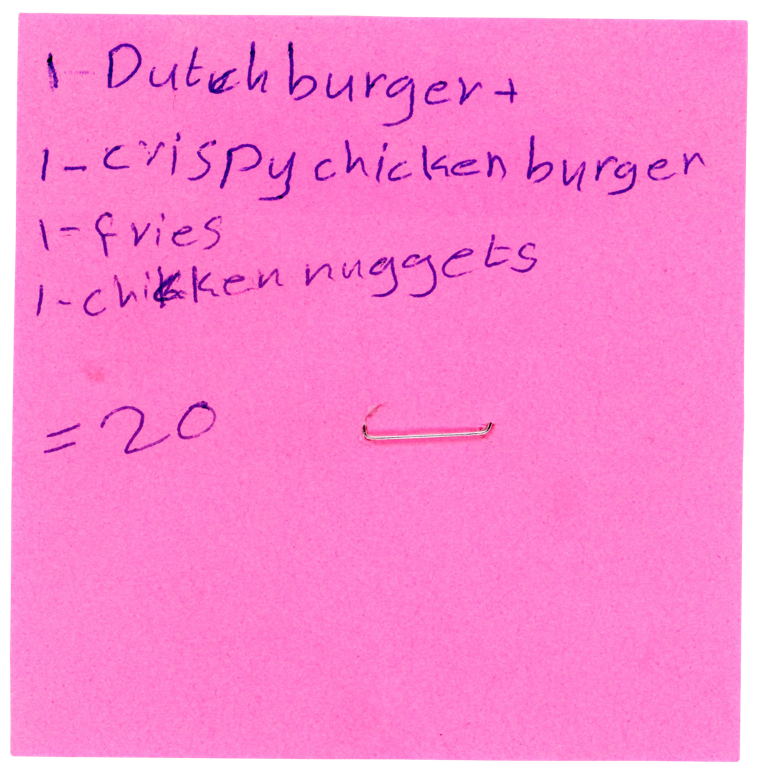 1-Dutch burger+
1-crispy chicken burger
1-fries
1-chicken nuggets
=20